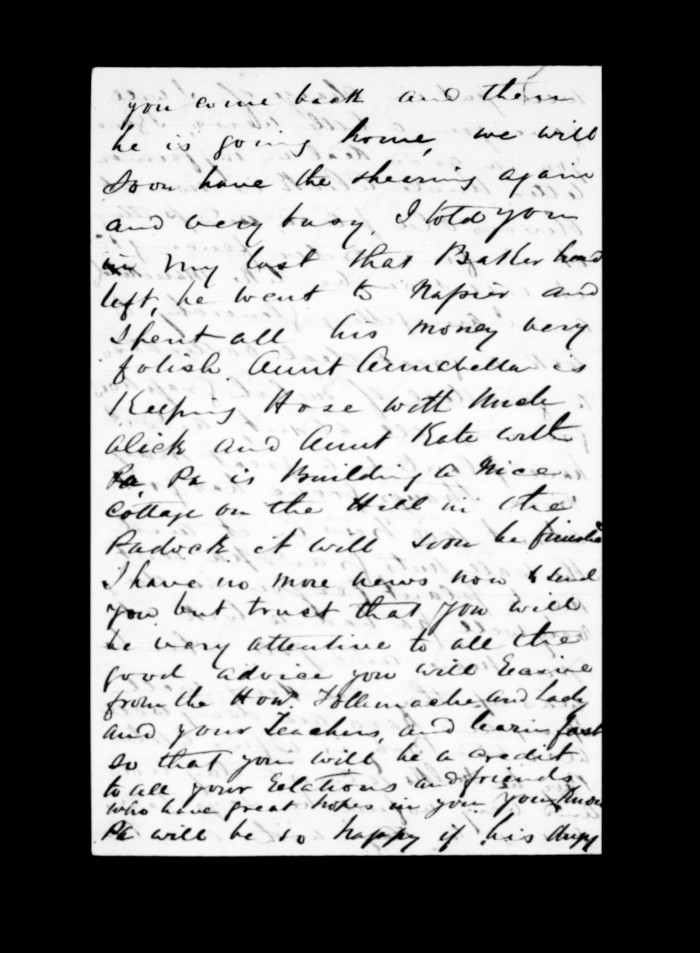 you come back and then
he is going home, we will
soon have the shearing again
and very busy, I told you
in my last that Balker had
left, he went to Napier and
spent all his money very
folish. Aunt Annabella is
Keeping Hose with Uncle
Alick and Aunt Kate with
Pa, Pa is Building a Nice
Cottage on the Hill in the
Padock it will soon be finished
I have no more news now to send
you but trust that you will
be very attentive to all the
good advice you will
from the Hon. Tollemache and Lady
and your Teachers, and learn fast
so that you will be a credit
to all your Relations and friends
who have great hopes in you you know
Pa will be so happy if his